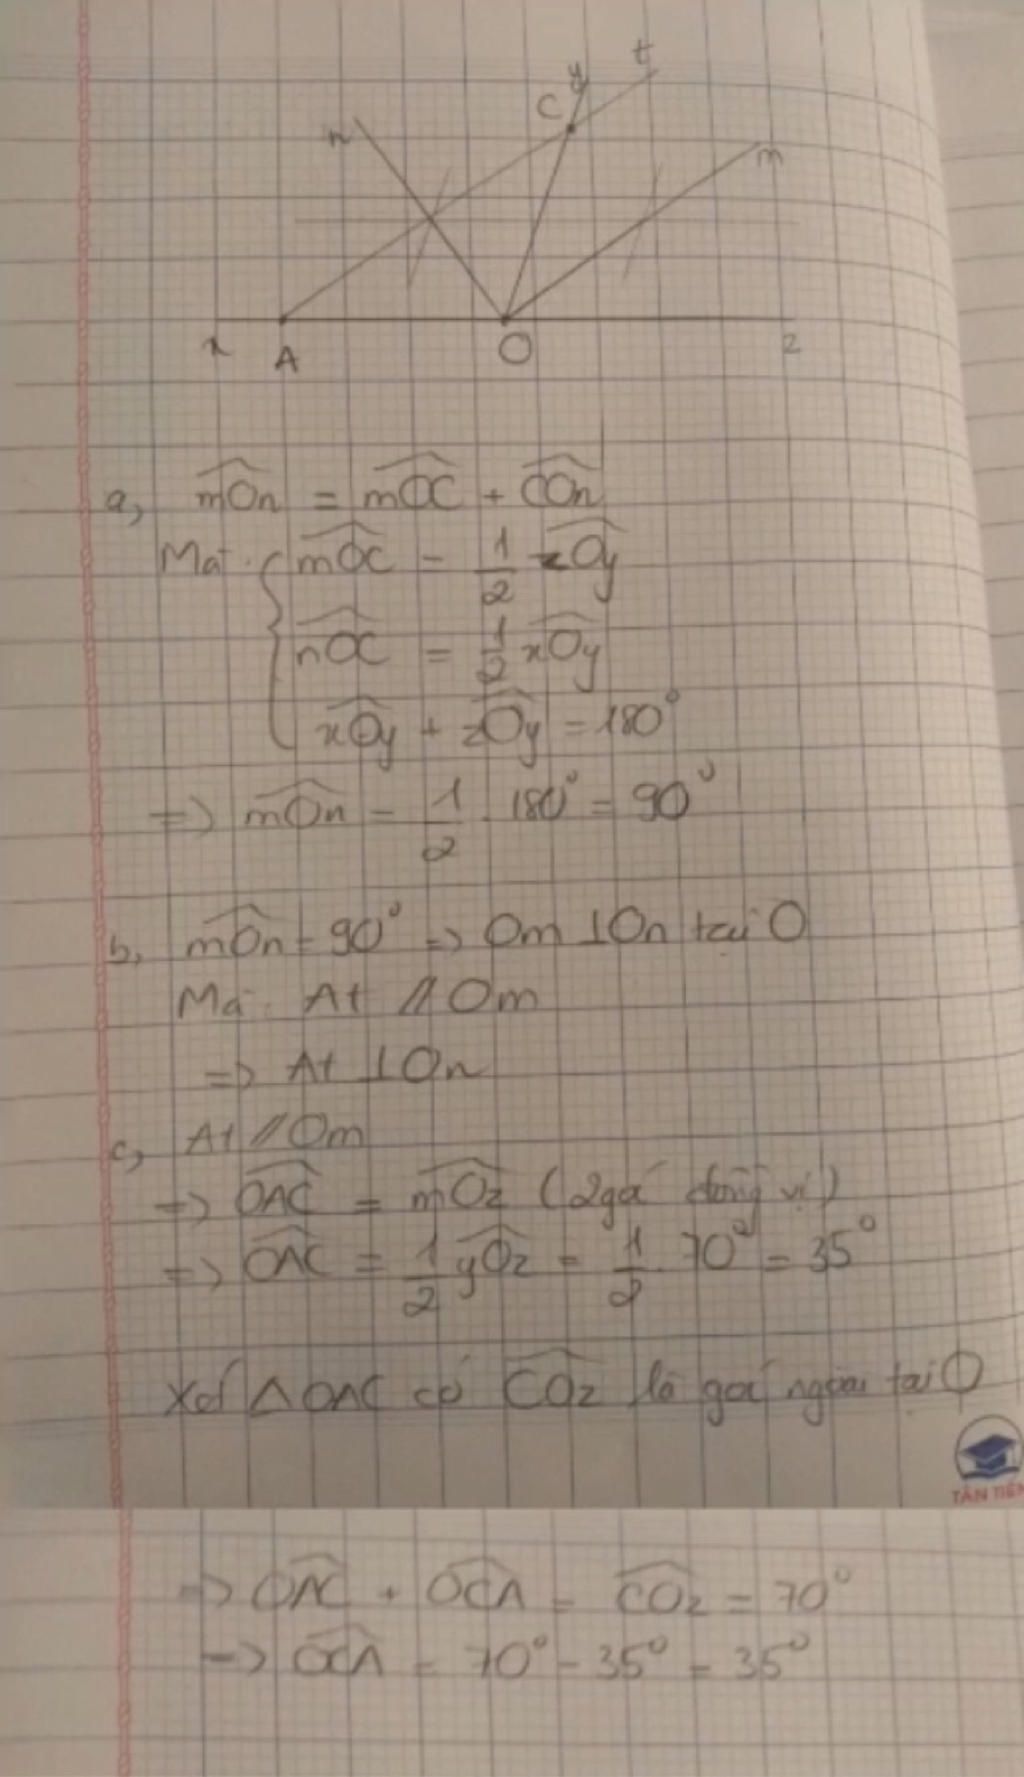 y t
C
n
m
x A O z
a, mOn = mOC + COn
Mà: { mOC = 1/2 zOy
nOC = 1/2 xOy
xOy + zOy = 180°
=> mOn = 1/2 180° = 90°
b, mOn = 90° => Om ⊥ On tại O
Mà: At // Om
=> At ⊥ On
c, At // Om
=> OAC = mOz (2 góc đồng vị)
=> OAC = 1/2 yOz = 1/2 . 70° = 35°
Xét △OAC có COz là góc ngoài tại O
TÂN TIẾN
=> OAC + OCA = COz = 70°
=> OCA = 70° - 35° = 35°